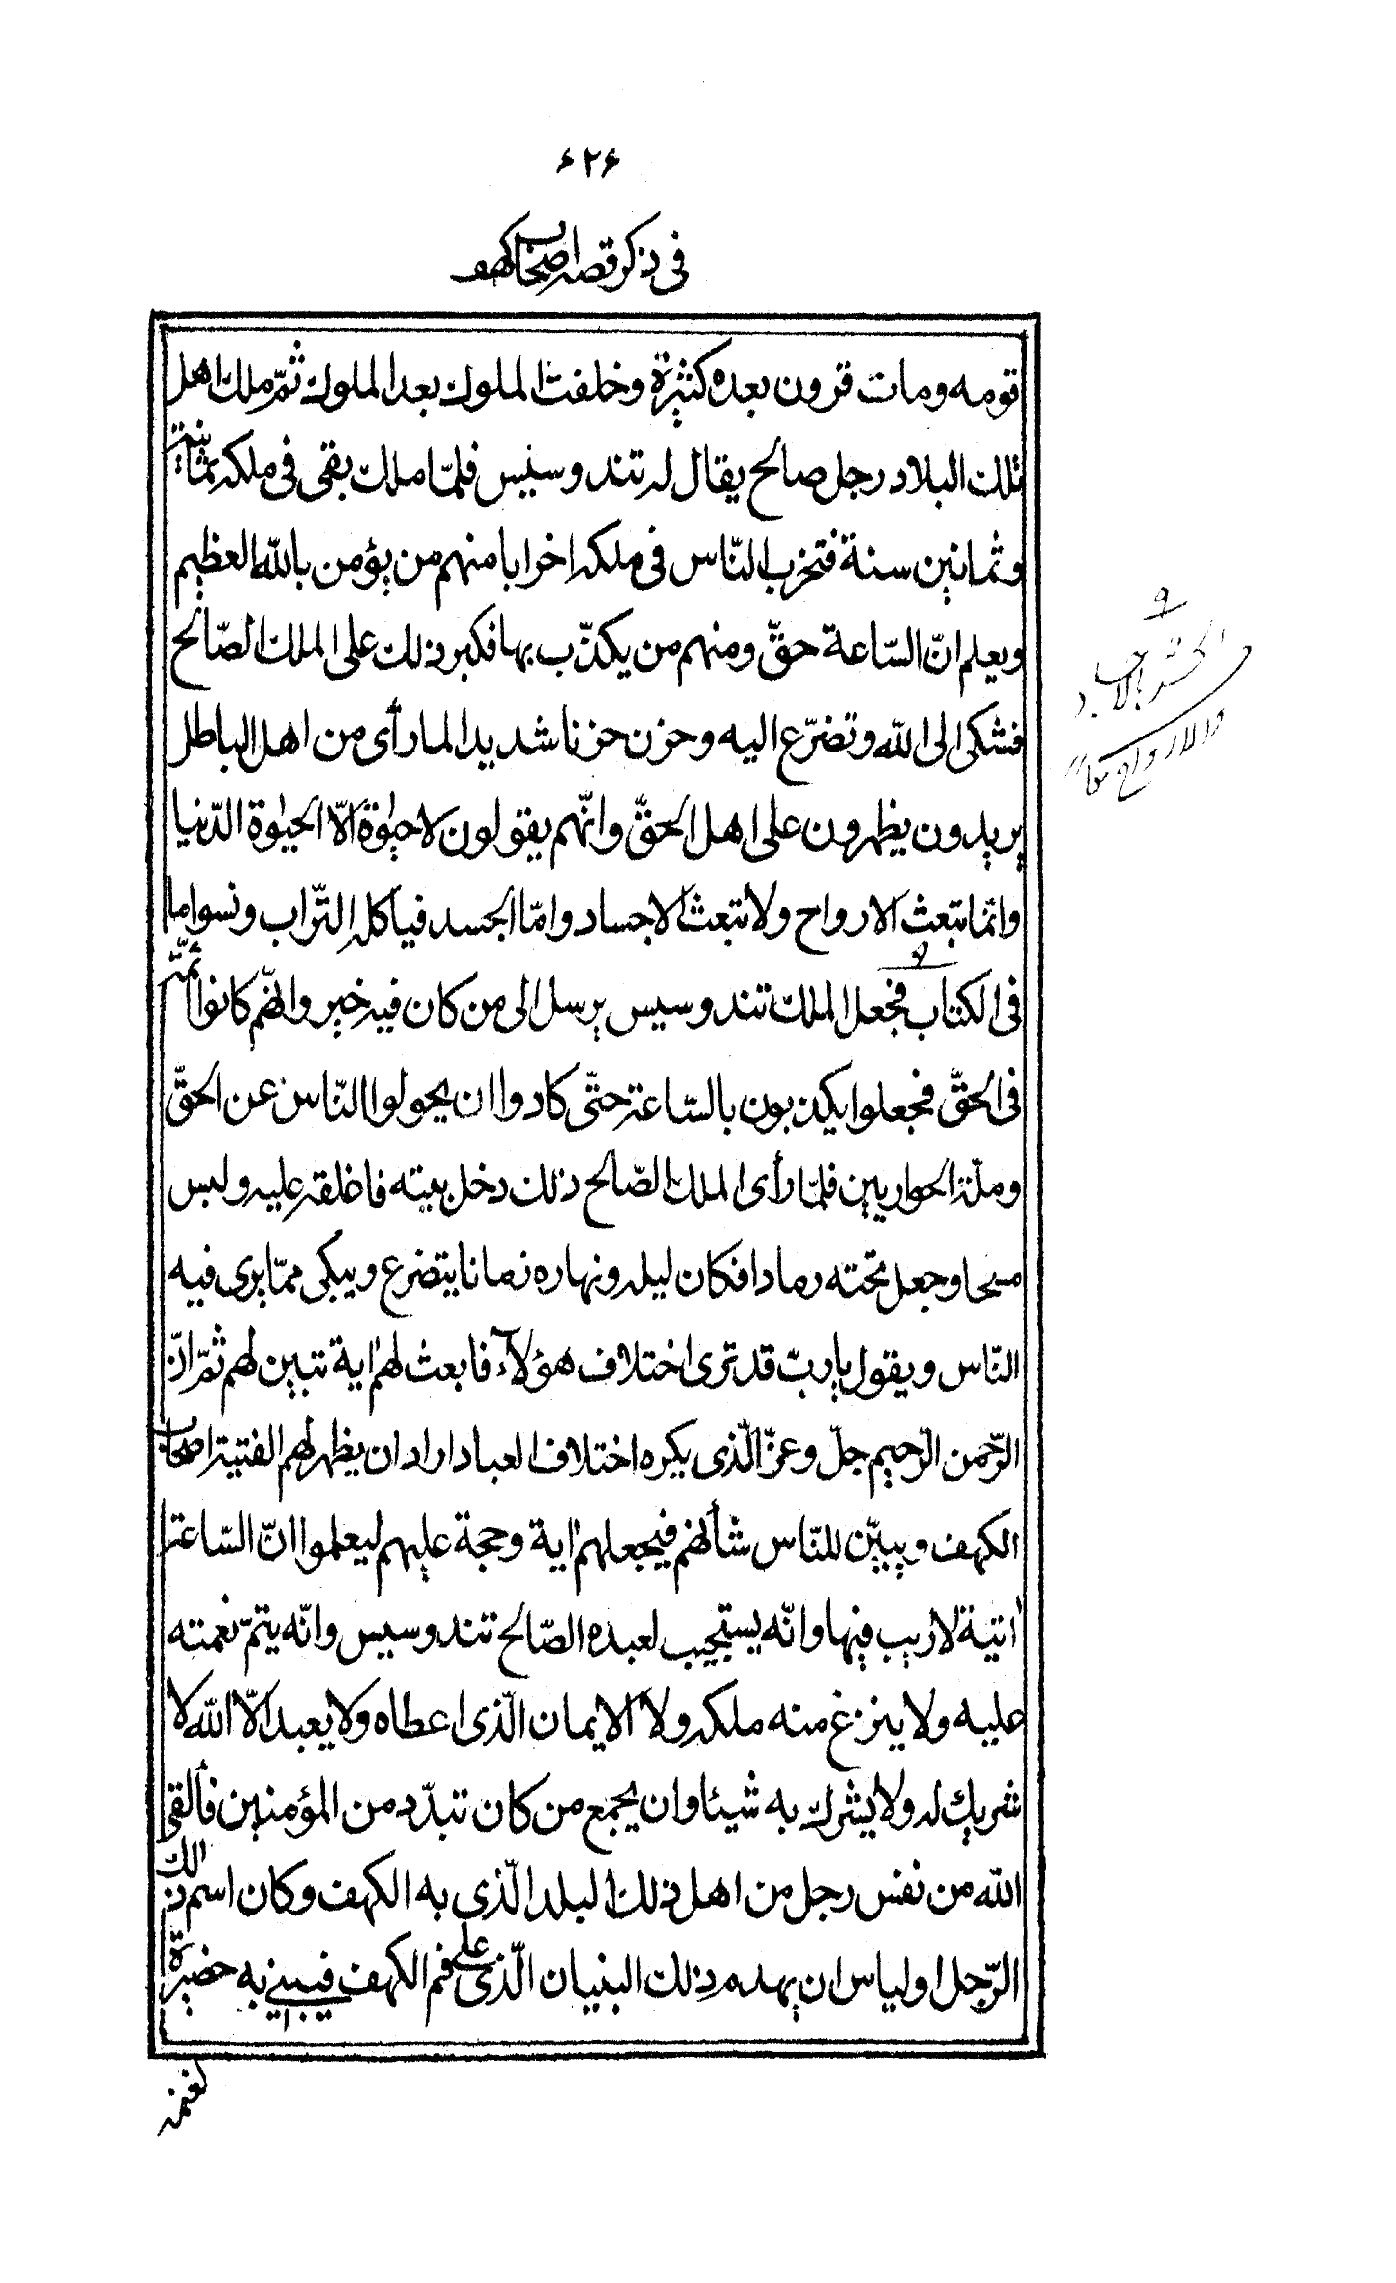 ۶۲۶
فى ذكر قصه اصحاب كهف
قومه ومات قرون بعده كثيرة وخلفت الملوك بعد الملوك ثمّ ملك اهل
تلك البلاد رجل صالح يقال له تندوسيس فلمّا ملك بقى فى ملكه ثمانية
وثمانين سنة فتحزب النّاس فى ملكه احزابا منهم من يؤمن بالله العظيم
ويعلم انّ السّاعة حقّ ومنهم من يكذّب بها فكبر ذلك على الملك الصّالح
فشكى الى الله وتضرّع اليه وحزن حزنا شديدا لما رأى من اهل الباطل
يريدون يظهرون على اهل الحقّ وانّهم يقولون لا حيوة الّا الحيوة الدّنيا
وانّما تبعث الارواح ولا تبعث الاجساد وامّا الجسد فيأكله التّراب ونسوا ما
فى الكتاب فجعل الملك تندوسيس يرسل الى من كان فيه خير وانّهم كانوا ائمّة
فى الحقّ فجعلوا يكذبون بالسّاعة حتّى كادوا ان يحولوا النّاس عن الحقّ
وملّة الحواريين فلمّا رأى الملك الصّالح ذلك دخل بيته فاغلقه عليه ولبس
مسحا وجعل تحته رمادا فكان ليله ونهاره زمانا يتضرع ويبكى ممّا يرى فيه
النّاس ويقول يا ربّ قد ترى اختلاف هؤلآء فابعث لهم اية تبين لهم ثمّ انّ
الرّحمن الرّحيم جلّ وعزّ الّذى يكره اختلاف العباد اراد ان يظهر لهم الفتية اصحاب
الكهف ويبيّن للنّاس شأنهم فيجعلهم اية وحجة عليهم ليعلموا انّ السّاعة
اتية لا ريب فيها وانّه يستجيب لعبده الصّالح تندوسيس وانّه يتمّ نعمته
عليه ولا ينزع منه ملكه ولا الايمان الّذى اعطاه ولا يعبد الّا الله لا
شريك له ولا يشرك به شيئا وان يجمع من كان تبدّد من المؤمنين فألقى
الله من نفس رجل من اهل ذلك البلد الّذى به الكهف وكان اسم ذلك
الرّجل اولياس ان يهدم ذلك البنيان الّذى على فم الكهف فيبنى به حضيرة
لغنمه
الحشر بالاجساد
والارواح معا